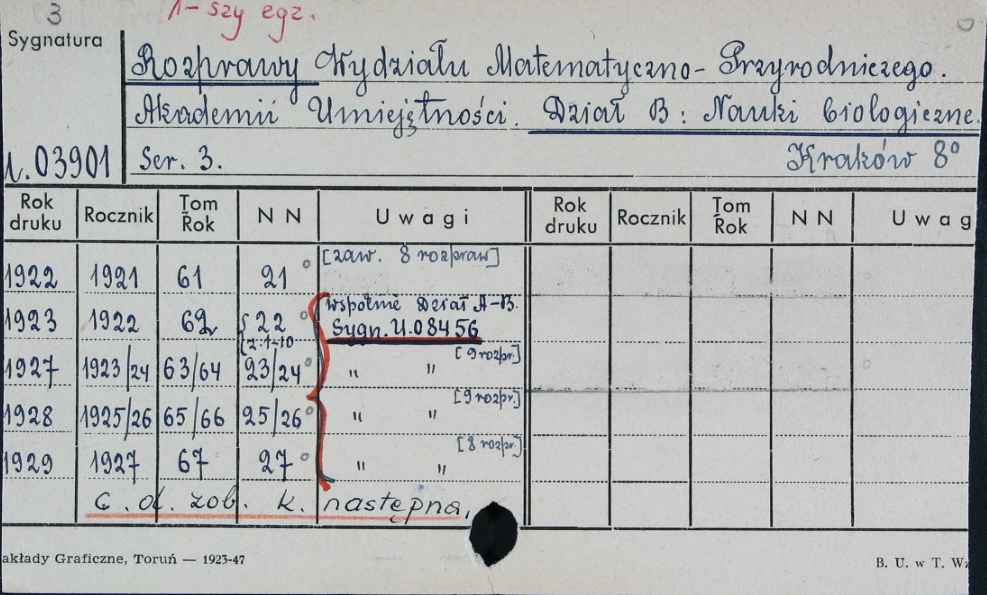 3 1-szy egz.
Sygnatura
Rozprawy Wydziału Matematyczno-Przyrodniczego.
Akademii Umiejętności. Dział B: Nauki biologiczne.
03901 Ser. 3. Kraków 8°
Rok druku Rocznik Tom Rok N N Uwagi Rok druku Rocznik Tom Rok N N Uwag
1922 1921 61 21 ° [zaw. 8 rozpraw]
1923 1922 62 22 ° wspólnie Dział A-B.
z.1-10 Sygn. U.08456
1927 1923/24 63/64 23/24 ° " " [9 rozpr.]
1928 1925/26 65/66 25/26 ° " " [9 rozpr.]
1929 1927 67 27 ° " " [8 rozpr.]
c. d. zob. k. następna.
akłady Graficzne, Toruń — 1925-47 B. U. w T. Wz